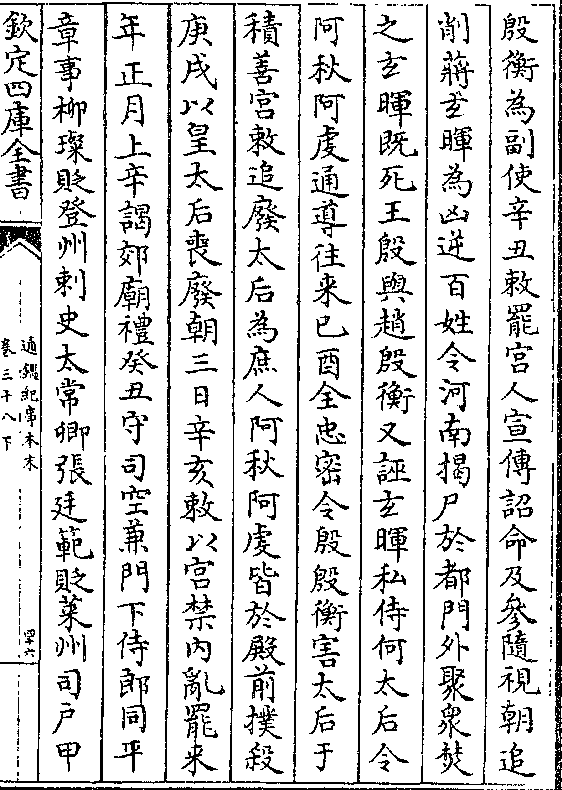 殷衡為副使辛丑敕罷宮人宣傳詔命及參隨視朝追
削蔣𤣥暉為凶逆百姓令河南揭尸於都門外聚衆焚
之𤣥暉既死王殷與趙殷衡又誣𤣥暉私侍何太后令
阿秋阿䖍通導往来已酉全忠密令殷殷衡害太后于
積善宮敕追廢太后為庶人阿秋阿䖍皆於殿前撲殺
庚戌以皇太后喪廢朝三日辛亥敕以宫禁内亂罷来
年正月上辛謁郊廟禮癸丑守司空兼門下侍郎同平
章事柳璨貶登州刺史太常卿張廷範貶萊州司戶甲
欽定四庫全書
通鑑紀事本末
卷三十八下
四六